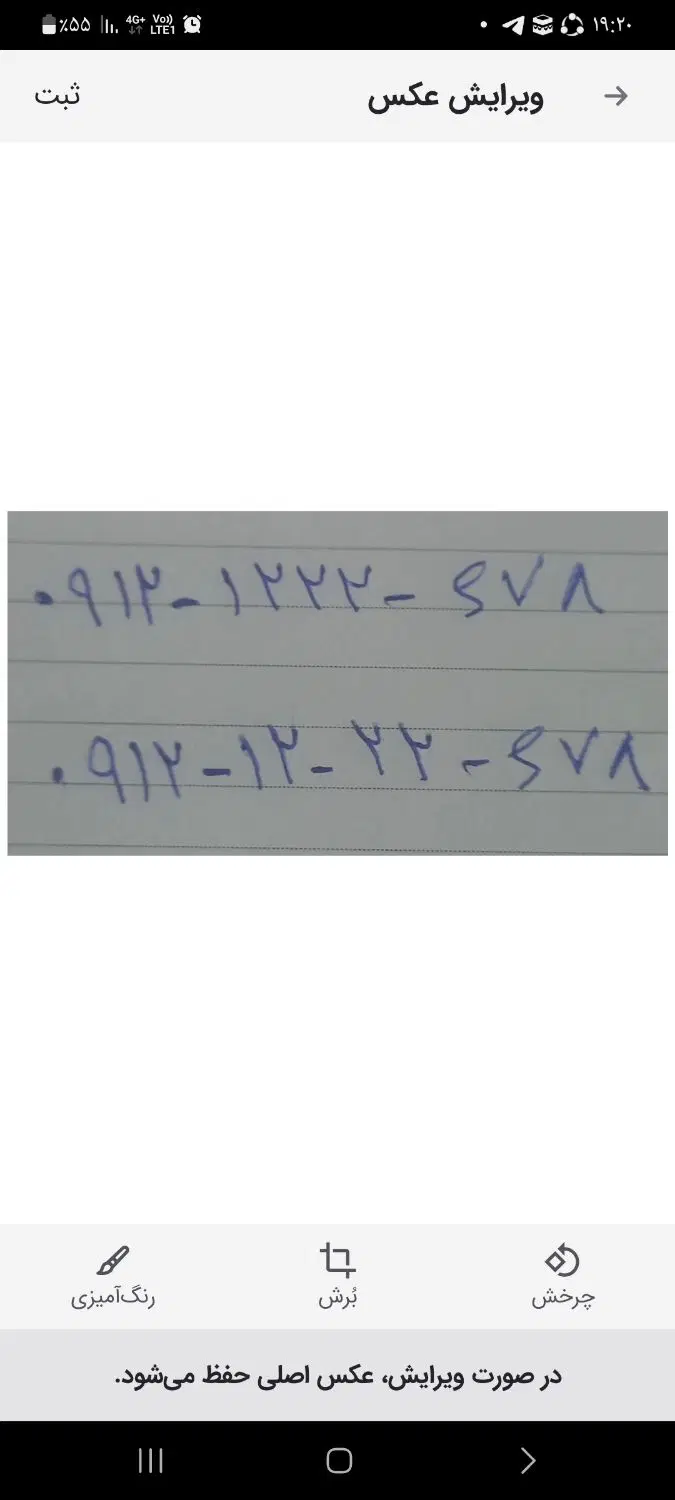 ٪۵۵ 4G+ Vo)) LTE1 ۱۹:۲۰
ویرایش عکس
ثبت
۰۹۱۲-۱۲۲۲-۶۷۸
۰۹۱۲-۱۲-۲۲-۶۷۸
چرخش
بُرش
رنگ‌آمیزی
در صورت ویرایش، عکس اصلی حفظ می‌شود.